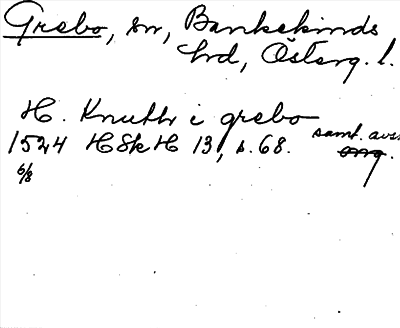 Grebo, sn, Bankekinds
hrd, Österg. l.
H. Knuttz i grebo
1524 HSkH 13, s. 68. samt. avs.
orig.
6/8